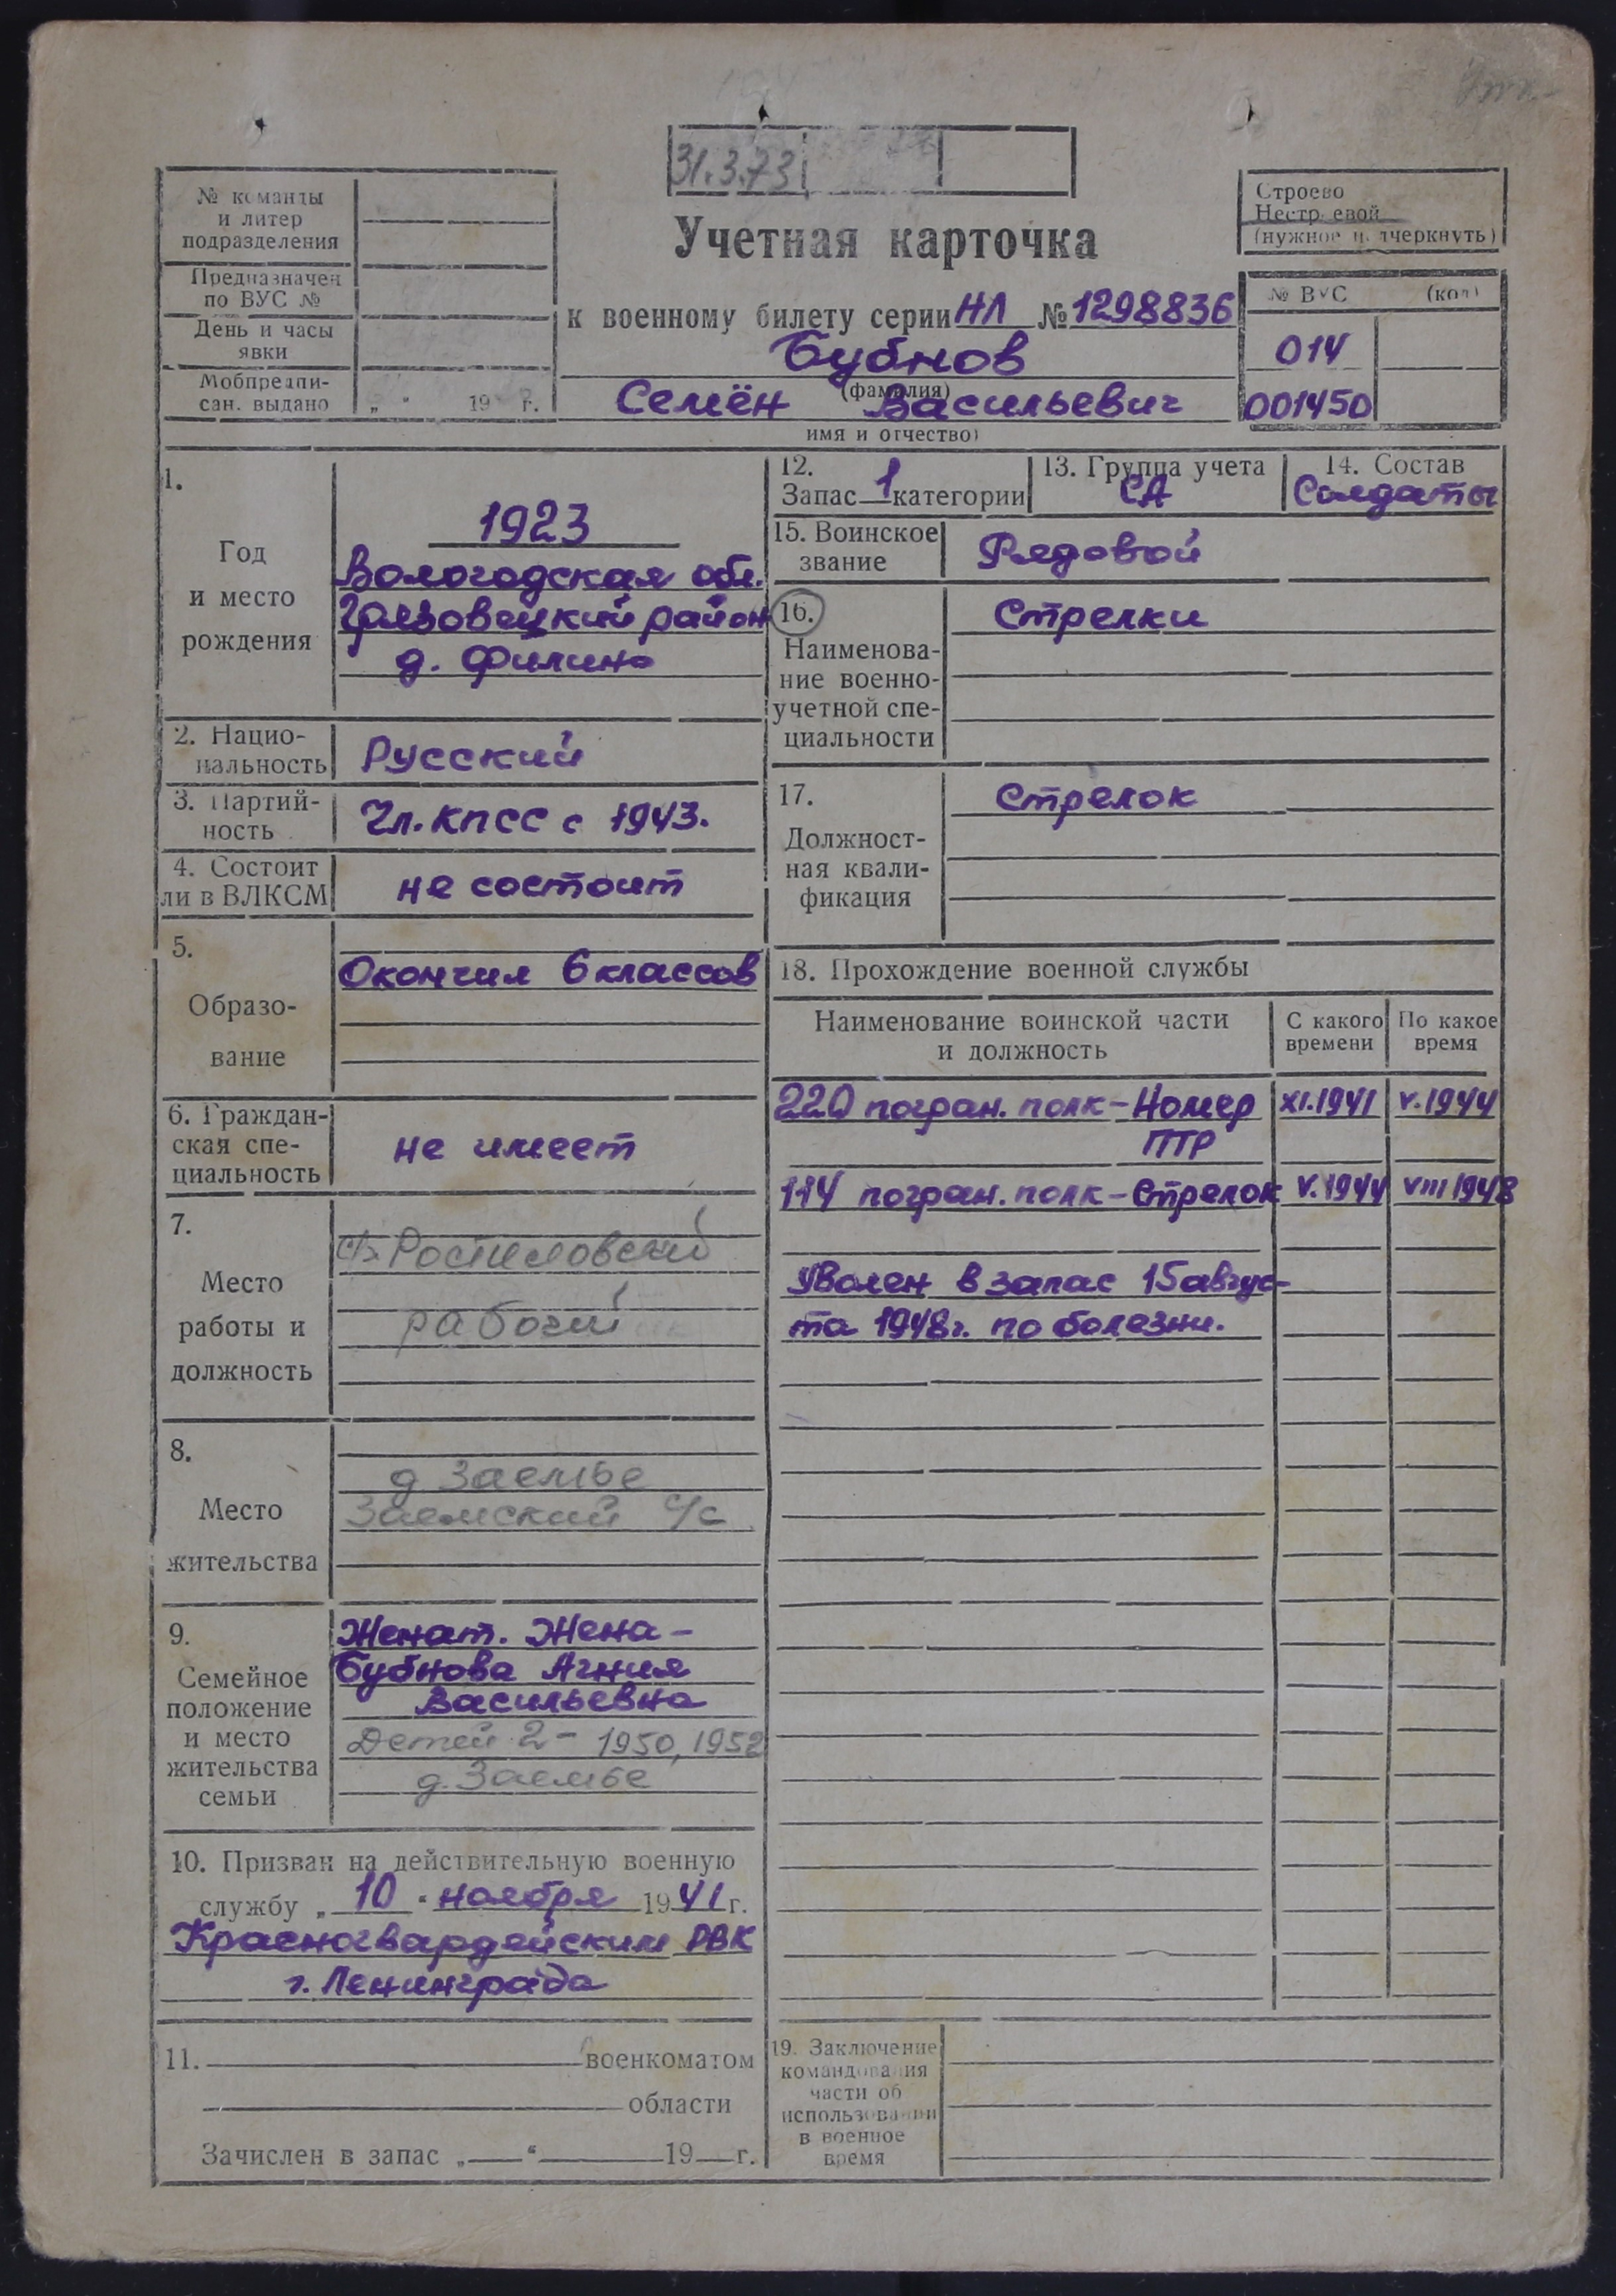 31.3.73
№ команды
и литер
подразделения
Предназначен
по ВУС №
День и часы
явки
Мобпредпи-
сан. выдано „ “ 19 г.
Учетная карточка
к военному билету серии НЛ № 1298836
Бубнов
(фамилия)
Семён Васильевич
имя и отчество)
Строево
Нестроевой
(нужное подчеркнуть)
№ ВУС (код)
014
001450
1.
Год
и место
рождения
1923
Вологодская обл.
Грязовецкий район
д. Филино
2. Нацио-
нальность
Русский
3. Партий-
ность
Чл. КПСС с 1943.
4. Состоит
ли в ВЛКСМ
не состоит
5.
Образо-
вание
Окончил 6 классов
6. Граждан-
ская спе-
циальность
не имеет
7.
Место
работы и
должность
с/з Ростиловский
рабочий
8.
Место
жительства
д Заемье
Заемский с/с
9.
Семейное
положение
и место
жительства
семьи
Женат. Жена –
Бубнова Агния
Васильевна
Детей 2 – 1950, 1952
д. Заемье
10. Призван на действительную военную
службу „ 10 “ ноября 1941 г.
Красногвардейским РВК
г. Ленинграда
11. военкоматом
области
Зачислен в запас „ “ 19 г.
12.
Запас 1 категории
13. Группа учета
СА
14. Состав
Солдаты
15. Воинское
звание
Рядовой
16.
Наименова-
ние военно-
учетной спе-
циальности
Стрелки
17.
Должност-
ная квали-
фикация
Стрелок
18. Прохождение военной службы
Наименование воинской части
и должность
С какого
времени
По какое
время
220 погран. полк – Номер XI.1941 V.1944
ПТР
114 погран. полк – Стрелок V.1944 VIII 1948
Уволен в запас 15 авгус-
та 1948 г. по болезни.
19. Заключение
командования
части об
использовании
в военное
время